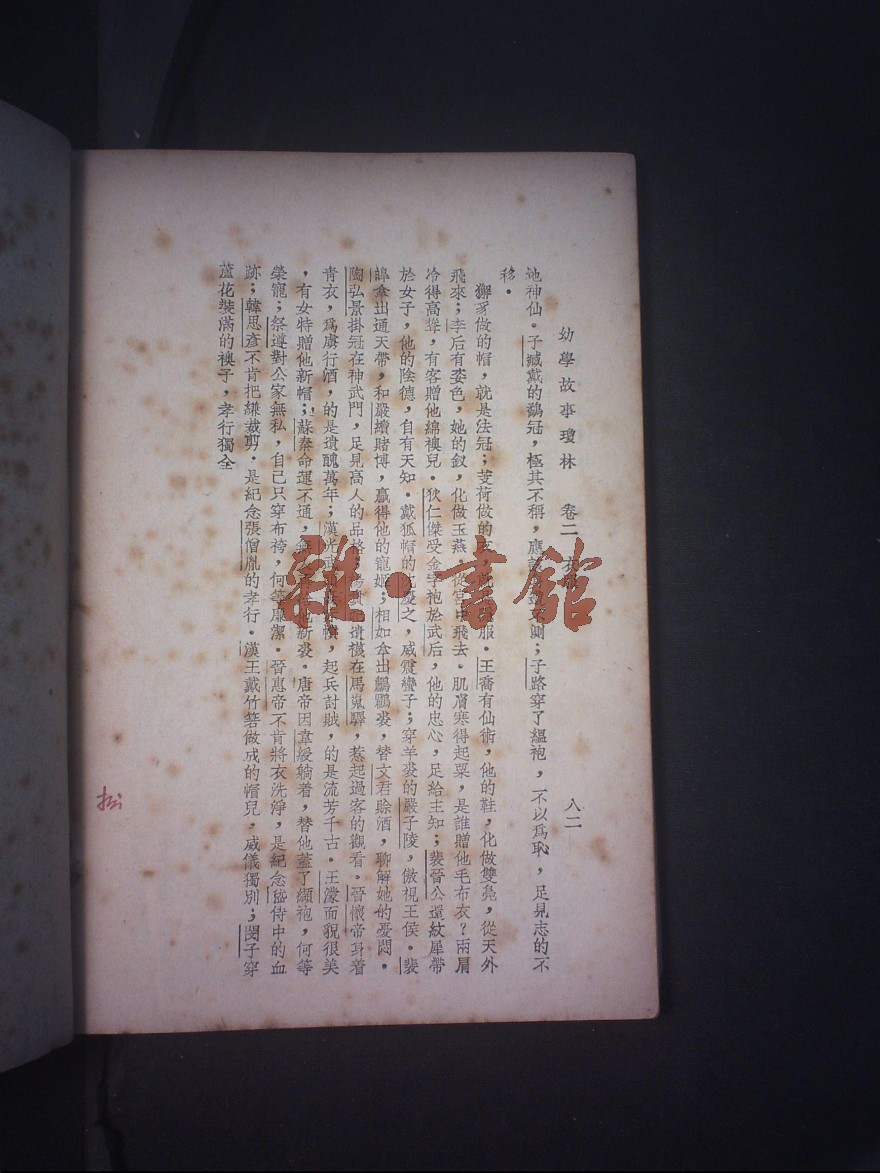 幼學故事瓊林 卷二 衣 八二
池神仙。子臧戴的鷸冠，極其不稱，應 不測；子路穿了縕袍，不以爲恥，足見志的不
移。
獬豸做的帽，就是法冠；芰荷做的 服。王喬有仙術，他的鞋，化做雙鳧，從天外
飛來；李后有姿色，她的釵，化做玉燕，從宮中飛去。肌膚寒得起粟，是誰贈他毛布衣？兩肩
冷得高聳，有客贈他綿襖兒。狄仁傑受金字袍於武后，他的忠心，足給主知；裴晉公還紋犀帶
於女子，他的陰德，自有天知。戴狐帽的沈慶之，威震蠻子；穿羊裘的嚴子陵，傲視王侯。裴
諱拿出通天帶，和嚴續賭博，贏得他的寵姬；相如拿出鷫鸘裘，替文君賒酒，聊解她的憂悶。
陶弘景掛冠在神武門，足見高人的品格；楊貴妃遺襪在馬嵬驛，惹起過客的觀看。晉懷帝身着
青衣，爲虜行酒，的是遺醜萬年；漢光武 幘，起兵討賊，的是流芳千古。王濛而貌很美
，有女特贈他新帽；蘇秦命運不通，無 他新裘。唐帝因韋綬躺着，替他蓋了纈袍，何等
榮寵；祭遵對公家無私，自己只穿布袴，何等廉潔。晉惠帝不肯將衣洗淨，是紀念嵇侍中的血
跡；韓思彥不肯把縑裁剪，是紀念張僧胤的孝行。漢王戴竹箬做成的帽兒，威儀獨別；閔子穿
蘆花裝滿的襖子，孝行獨全
雜·書館